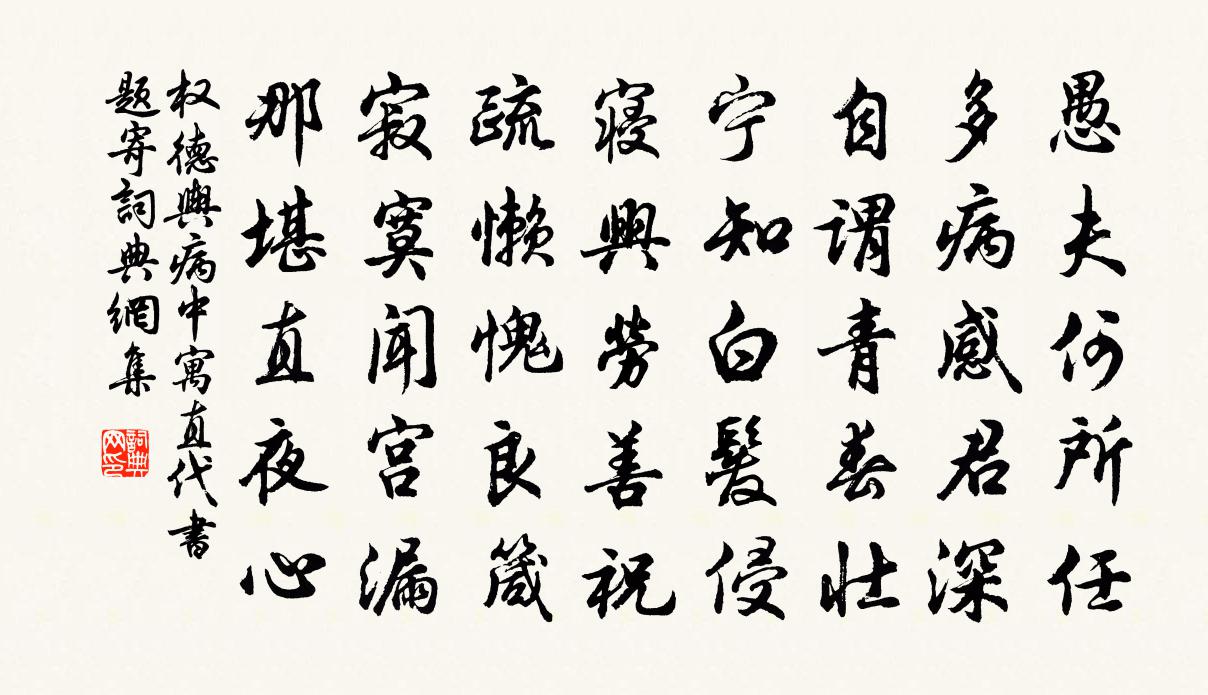 愚夫何所任
多病感君深
自谓青春壮
宁知白髮侵
寝興劳善祝
疏懒愧良箴
寂寞闻宫漏
那堪直夜心
权德輿病中寓直代書
题寄詞典網集
詞典网印